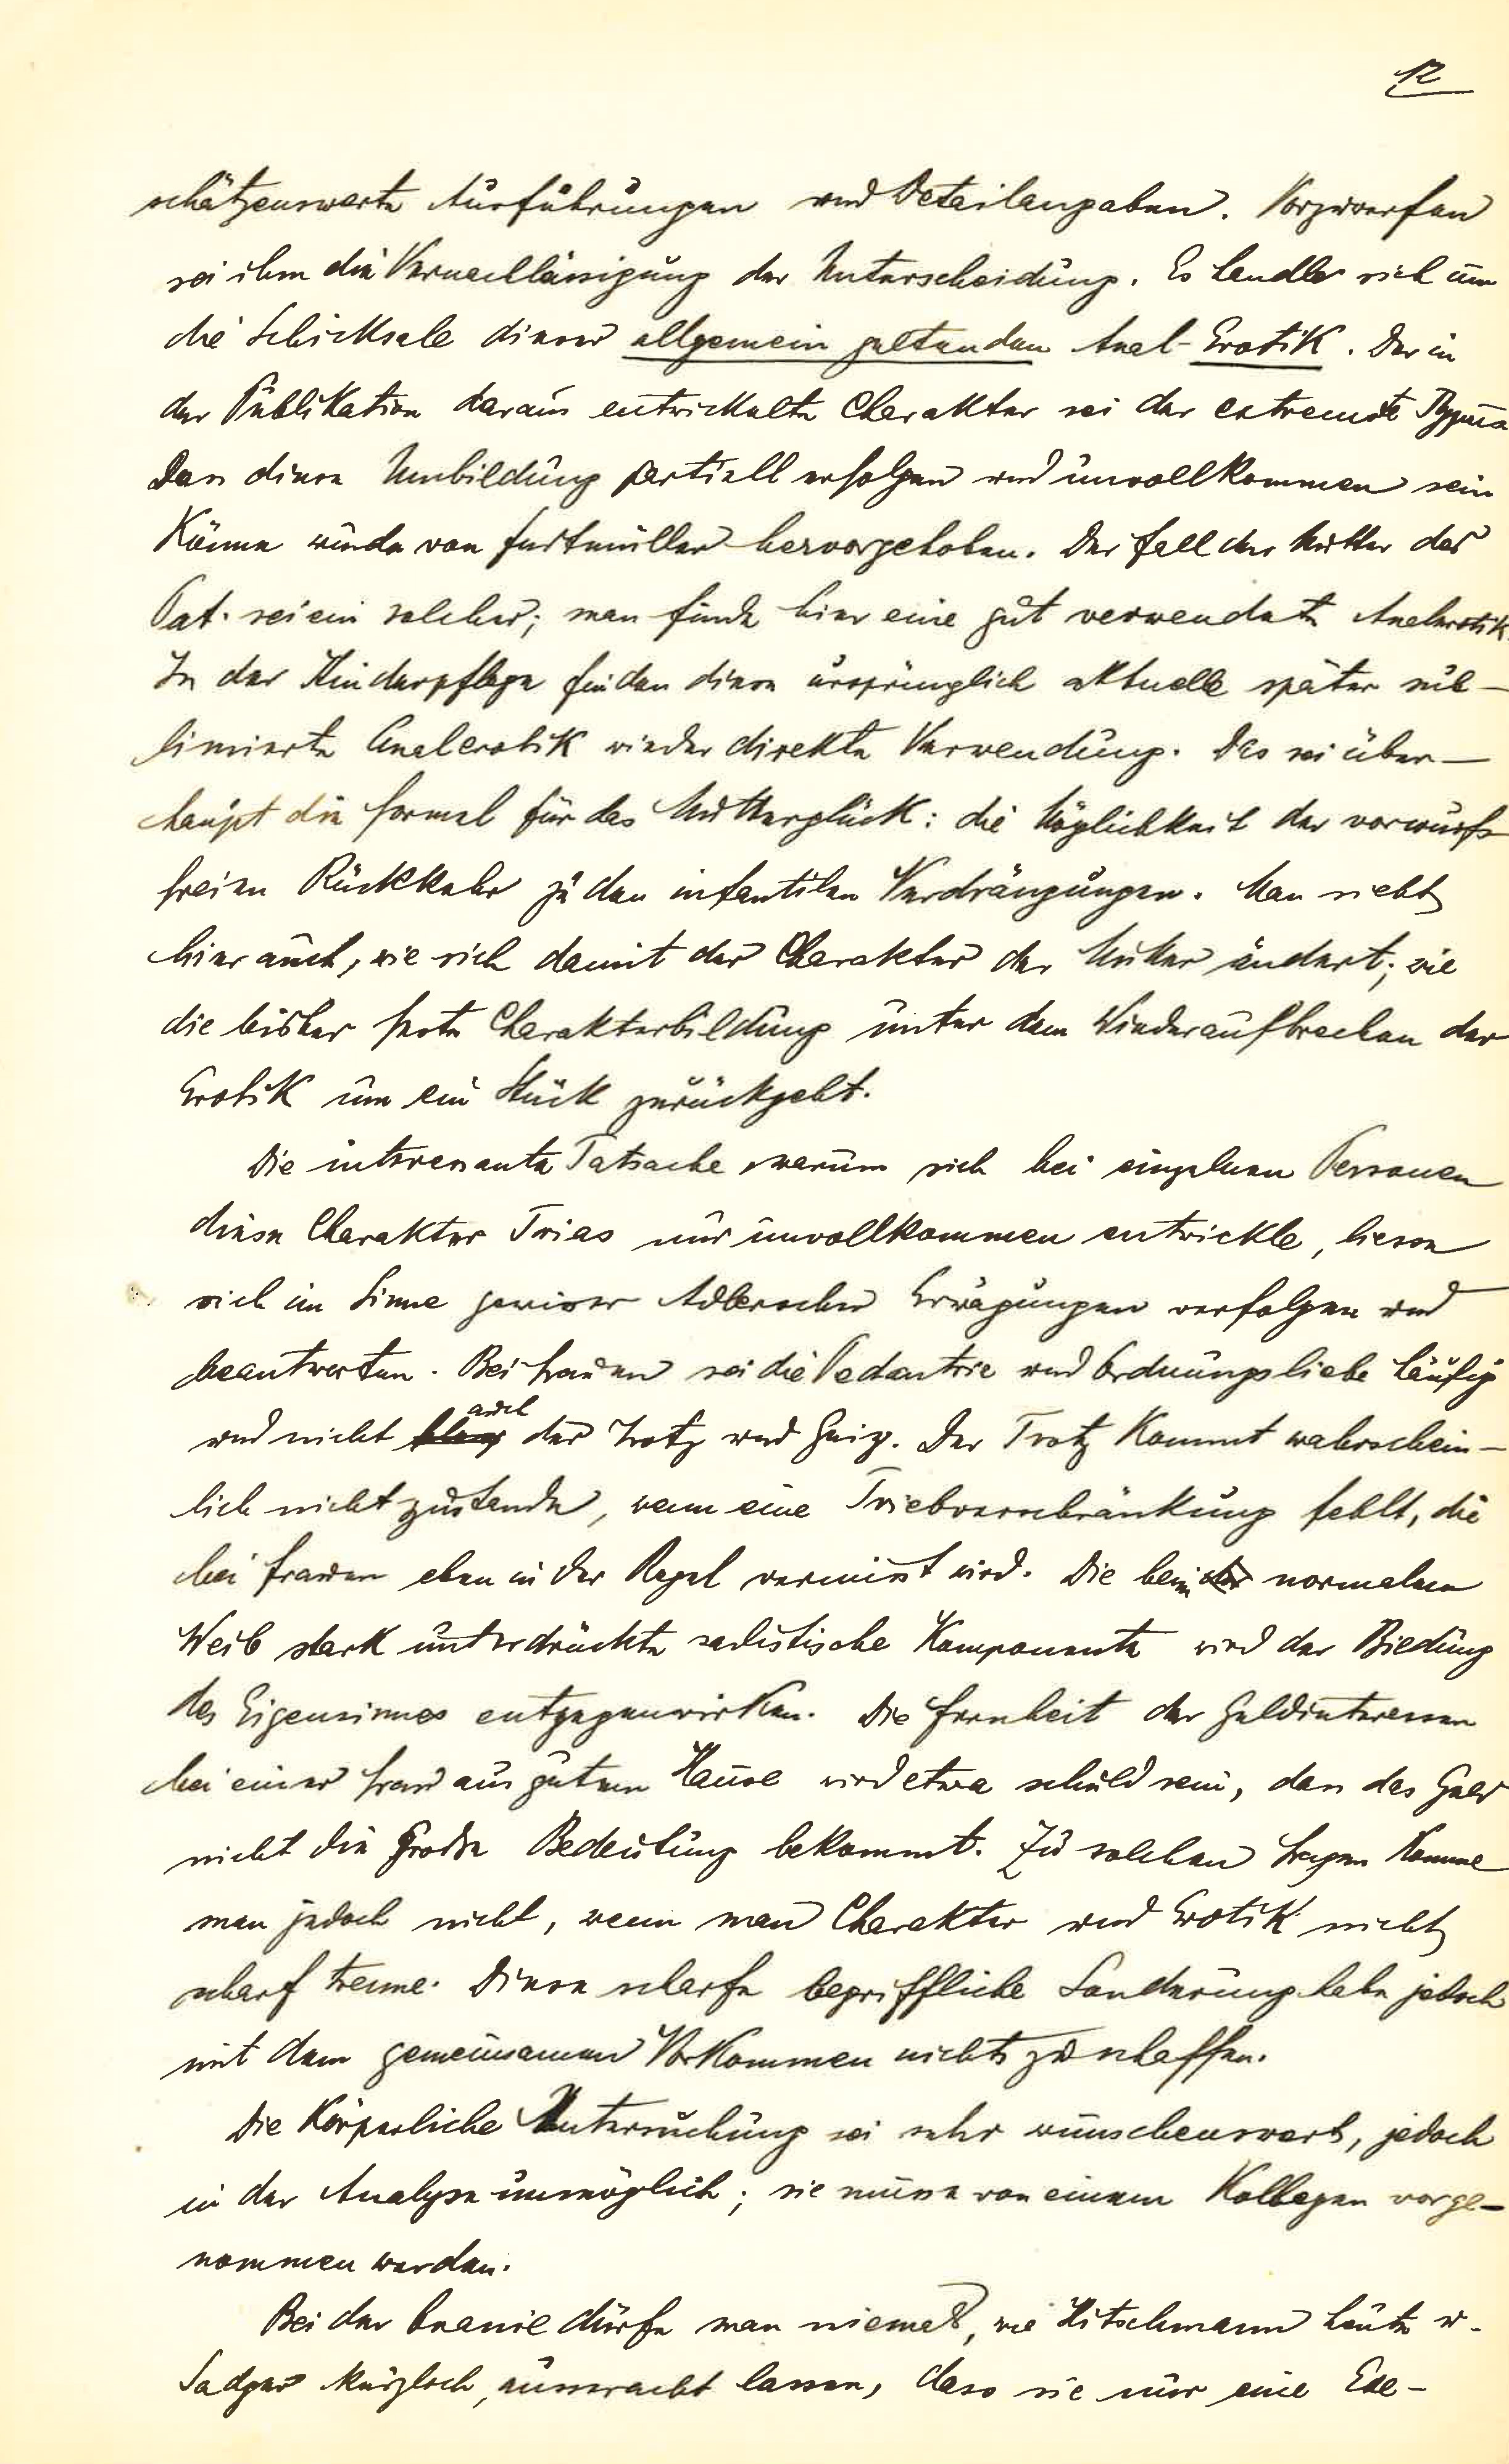 12
schätzenswerte Ausführungen und Detailangaben. Vorzuwerfen
sei ihm die Vernachlässigung der Unterscheidung. Es handle sich um
die Schicksale dieser allgemein geltenden Anal-Erotik. Der in
der Publikation daraus entwickelte Charakter sei der extremste Typus
Dass diese Umbildung partiell erfolgen und unvollkommen sein
könne wurde von Furtmüller hervorgehoben. Der Fall der Mutter des
Pat. sei ein solcher; man finde hier eine gut verwendete Analerotik
In der Kinderpflege finden diese ursprünglich aktuelle später sub-
limierte Analerotik wieder direkte Verwendung. Das sei über-
haupt die Formel für das Mutterglück: die Möglichkeit der vorwurfs
freien Rückkehr zu den infantilen Verdrängungen. Man sieht
hier auch, wie sich damit der Charakter der Mutter ändert; wie
die bisher feste Charakterbildung unter dem Wiederaufbrechen der
Erotik um ein Stück zurückgeht.
Die interessante Tatsache warum sich bei einzelnen Personen
diese Charakter Trias nur unvollkommen entwickle, liesse
sich im Sinne gewisser Adlerscher Erwägungen verfolgen und
beantworten. Bei Frauen sei die Pedanterie und Ordnungsliebe häufig
und nicht auch der Trotz und Geiz. Der Trotz kommt wahrschein-
lich nicht zustande, wenn eine Triebverschränkung fehlt, die
bei Frauen eben in der Regel vermisst wird. Die beim normalen
Weib stark unterdrückte sadistische Komponente wird der Bildung
des Eigensinnes entgegenwirken. Die Fernheit der Geldinteressen
bei einer Frau aus gutem Hause wird etwa schuld sein, dass das Geld
nicht die grosse Bedeutung bekommt. Zu solchen Fragen komme
man jedoch nicht, wenn man Charakter und Erotik nicht
scharf trenne. Diese scharfe begriffliche Sonderung habe jedoch
mit dem gemeinsamen Vorkommen nichts zu schaffen.
Die körperliche Untersuchung sei sehr wünschenswert, jedoch
in der Analyse unmöglich; sie müsse von einem Kollegen vorge-
nommen werden.
Bei der Onanie dürfe man niemals, wie Hitschmann heute u.
Sadger kürzlich, ausseracht lassen, dass sie nur eine Exe-